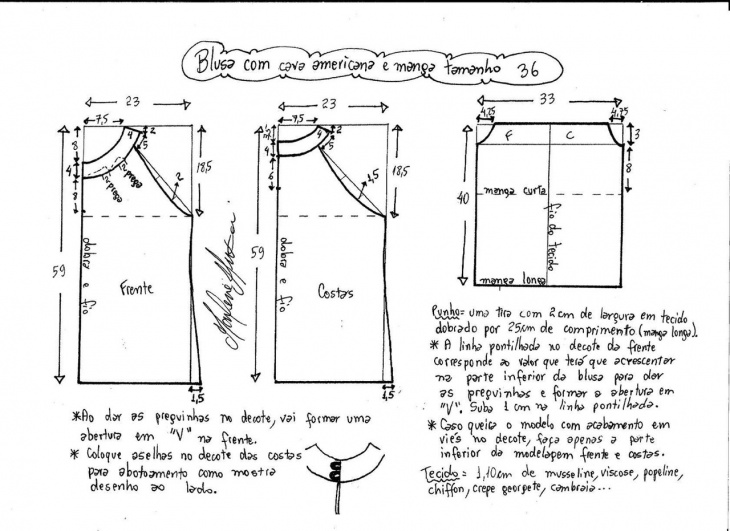 Blusa com cava americana e manga tamanho 36
23
7,5
4
2
5
8
4
8
18,5
59
2
1/2 prega
1/2 prega
dobra e fio
Frente
1,5
23
7,5
4
2
5
4
6
18,5
59
1,5
dobra e fio
Costas
1,5
33
4,75
4,75
F
C
3
8
40
manga curta
fio do tecido
manga longa
Punho = uma tira com 2cm de largura em tecido
dobrado por 25cm de comprimento (manga longa).
* A linha pontilhada no decote da frente
corresponde ao valor que terá que acrescentar
na parte inferior da blusa para dar
as preguinhas e formar a abertura em
"V". Suba 1cm na linha pontilhada.
* Caso queira o modelo com acabamento em
viés no decote, faça apenas a parte
inferior da modelagem frente e costas.
Tecido = 1,10cm de musseline, viscose, popeline,
chiffon, crepe georgete, cambraia...
*Ao dar as preguinhas no decote, vai formar uma
abertura em "V" na frente.
* Coloque aselhas no decote das costas
para abotoamento como mostra
desenho ao lado.